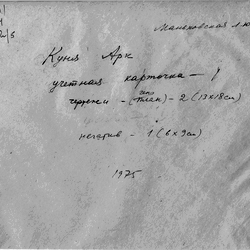 Маньковская Л.Ю.
Куня Арк
учетная карточка — 1
чертежи — (план) — 2 (13х18см)
негатив — 1 (6х9см)
1975